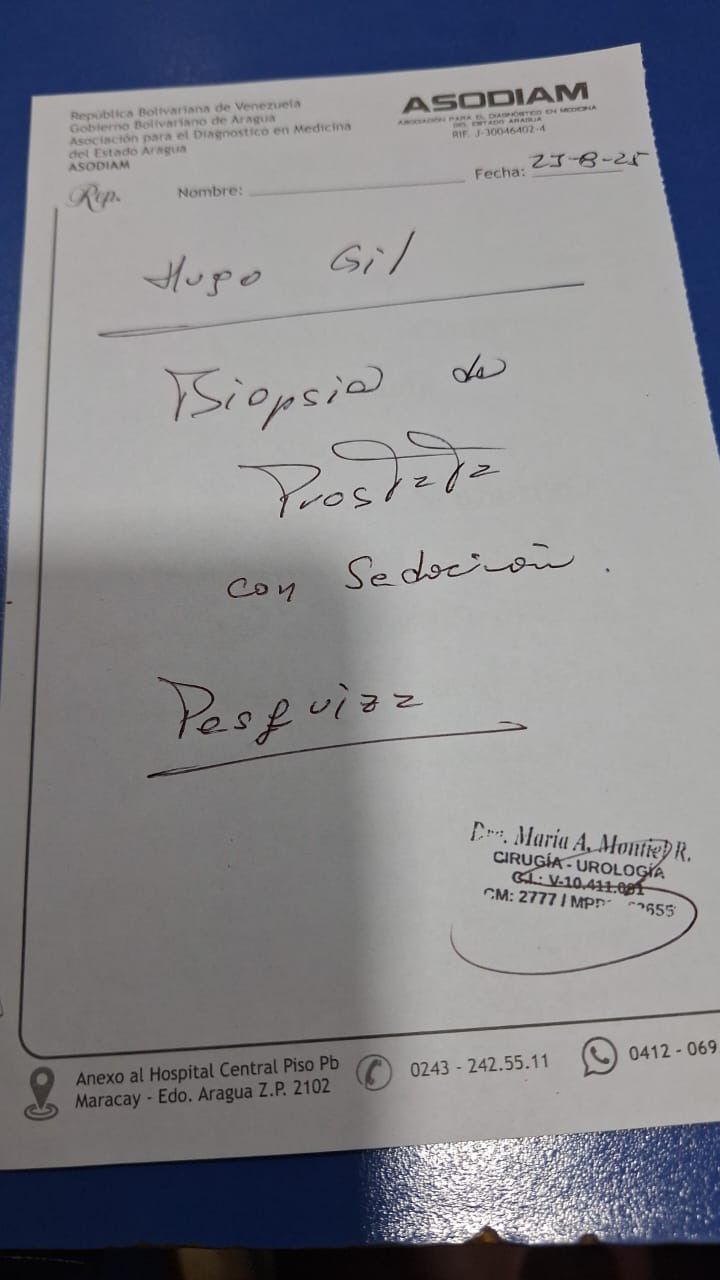 República Bolivariana de Venezuela
Gobierno Bolivariano de Aragua
Asociación para el Diagnostico en Medicina
del Estado Aragua
ASODIAM
ASODIAM
ASOCIACIÓN PARA EL DIAGNÓSTICO EN MEDICINA
DEL ESTADO ARAGUA
RIF. J-30046402-4
Rep.
Nombre:
Fecha: 23-8-25
Hugo Gil
Biopsia de
Prostata
con Sedación.
Pesquiza
Dra. Maria A. Montiel R.
CIRUGÍA - UROLOGÍA
C.I.: V-10.411.081
CM: 2777 / MPPS
Anexo al Hospital Central Piso Pb
Maracay - Edo. Aragua Z.P. 2102
0243 - 242.55.11
0412 - 069